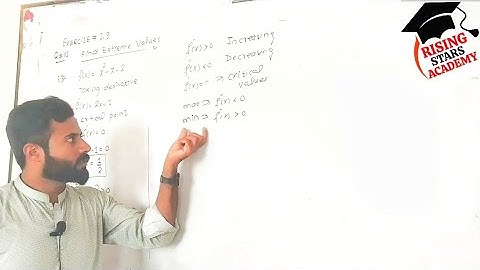 Exercise = 2.9
Find Extreme Values
f(x) = x² - x - 2
Taking derivative
f'(x) = 2x - 1
point
f'(x) = 0
1 = 0
1/2
f'(x) > 0 Increasing
f'(x) < 0 Decreasing
f'(x) = 0 ⇒ Critical
values
max ⇒ f''(x) < 0
min ⇒ f''(x) > 0
RISING
STARS
ACADEMY